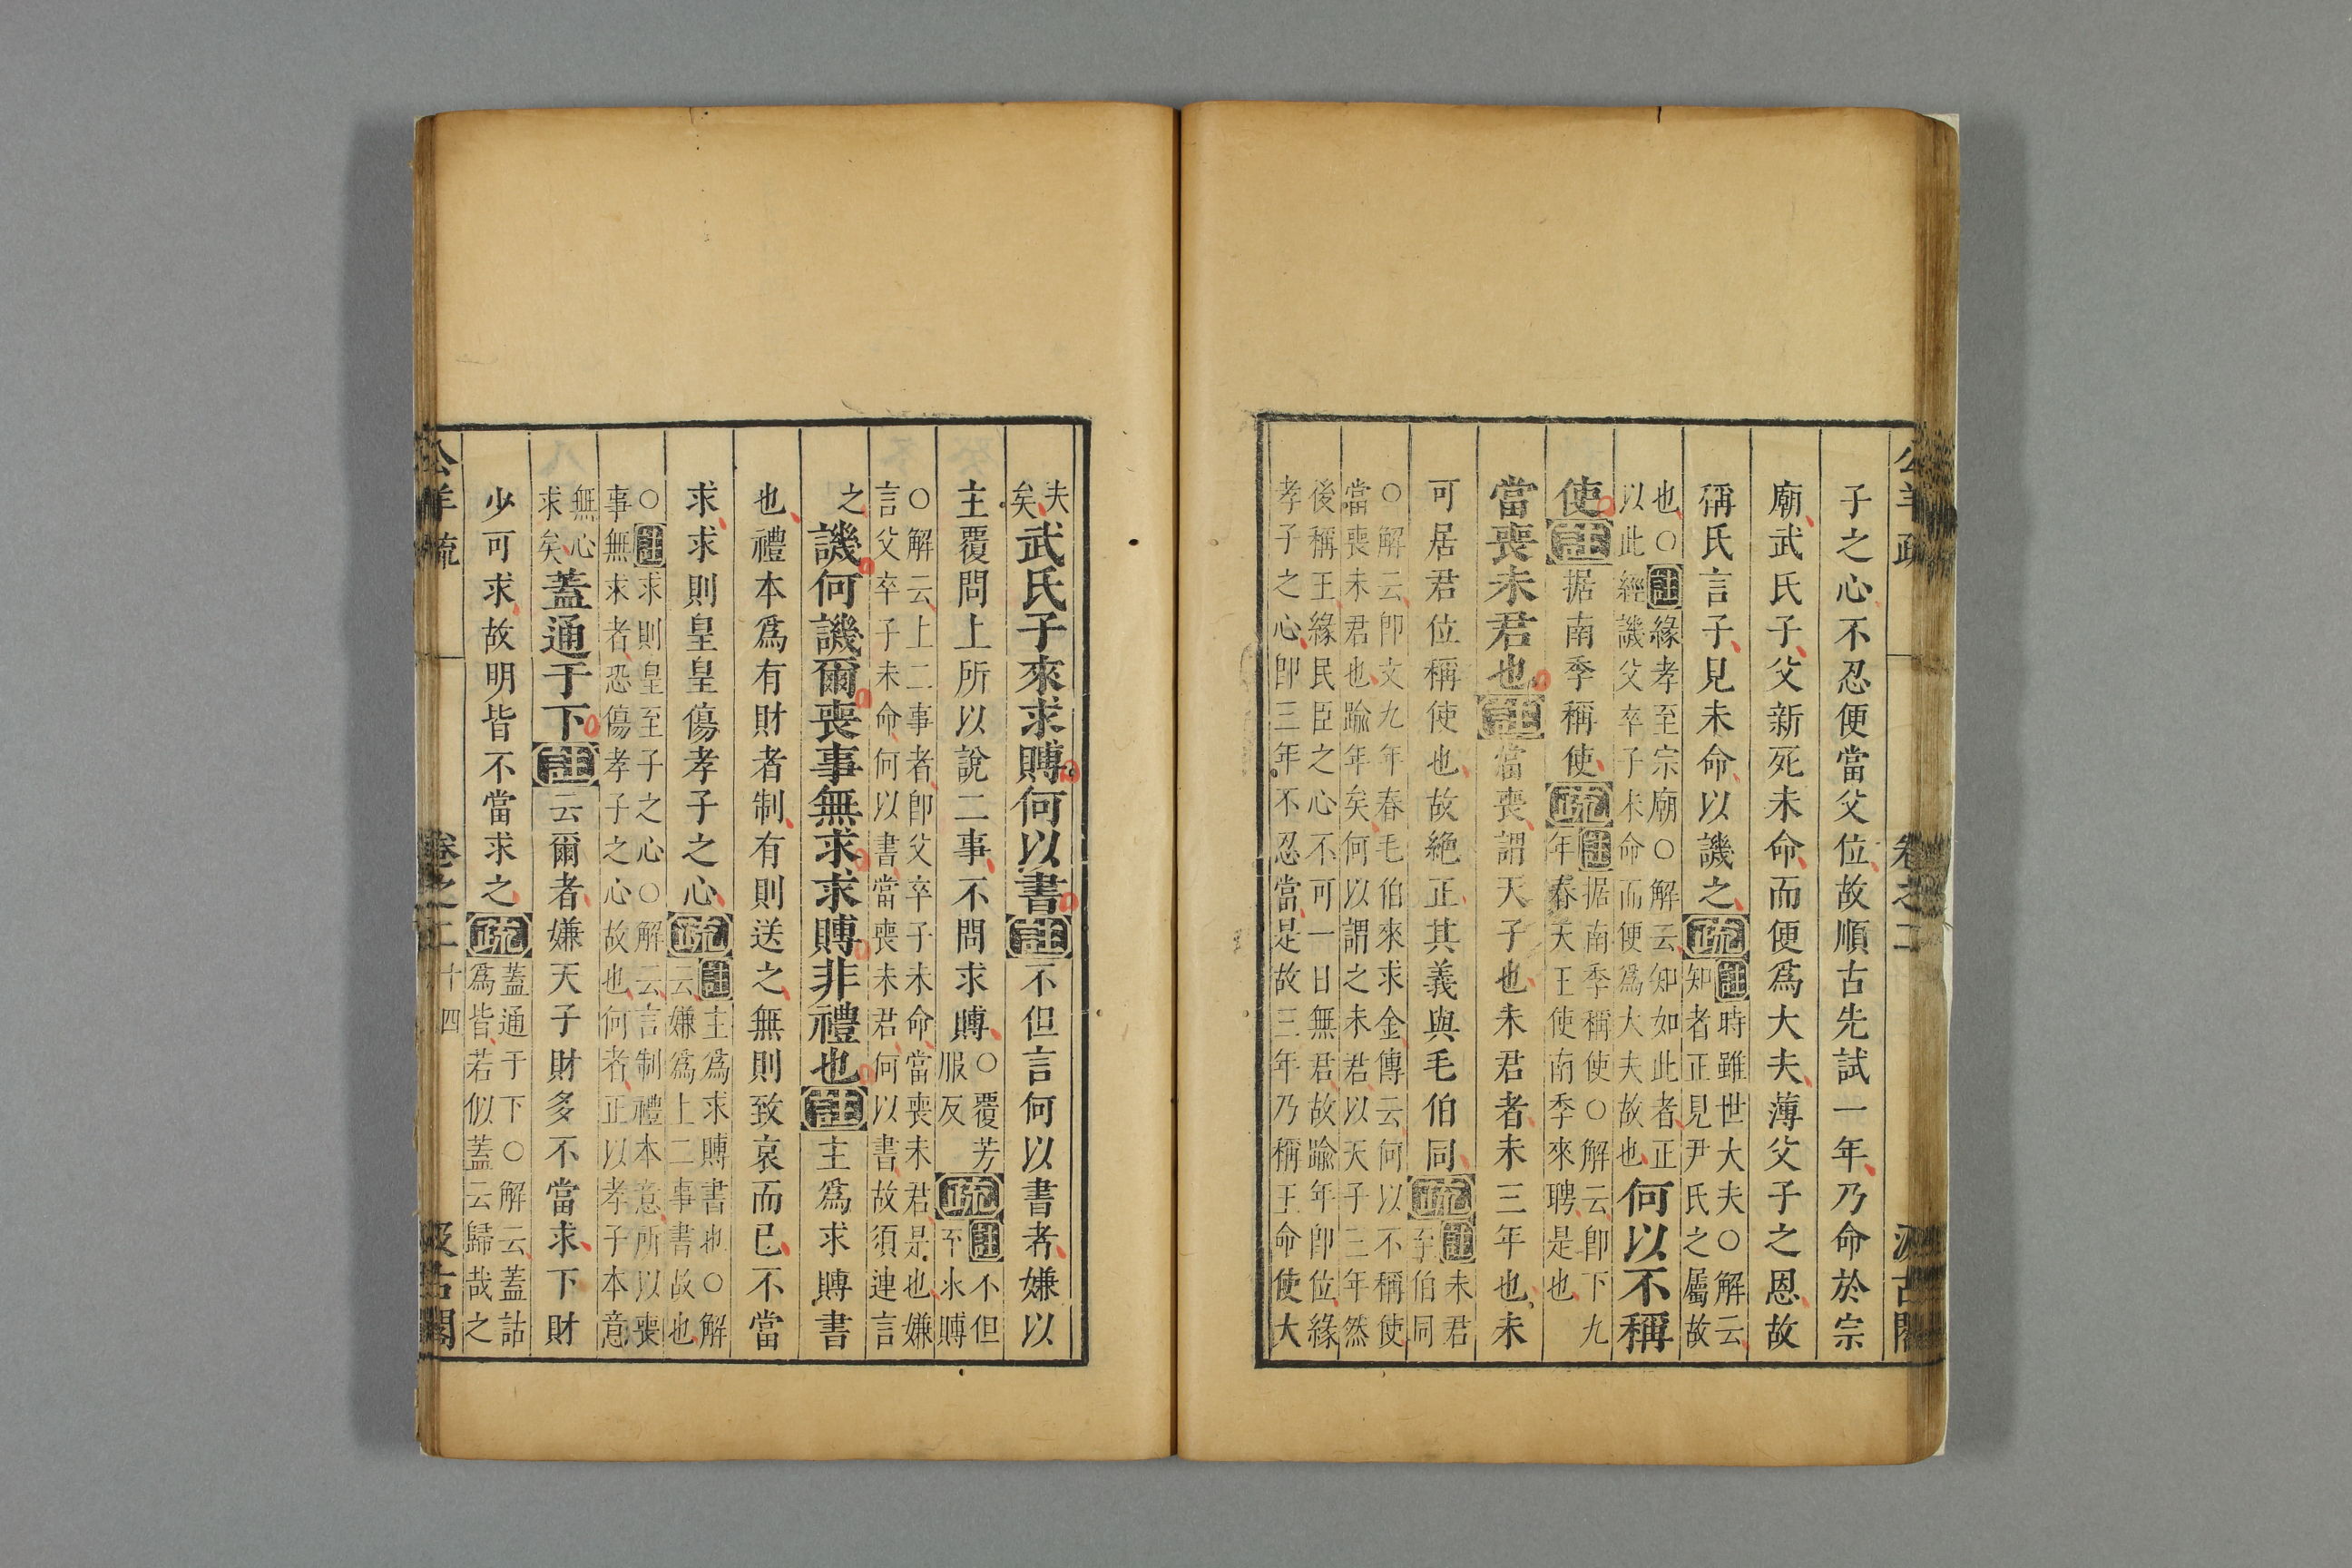 公羊疏 卷之二 汲古閣
子之心不忍便當父位故順古先試一年乃命於宗
廟武氏子父新死未命而便爲大夫薄父子之恩故
稱氏言子見未命以譏之疏註時雖世大夫○解云
知者正見尹氏之屬故
也○註緣孝至宗廟○解云知如此者正
以此經譏父卒子未命而便爲大夫故也何以不稱
使註据南季稱使疏註据南季稱使○解云卽下九
年春天王使南季來聘是也
當喪未君也註當喪謂天子也未君者未三年也未
可居君位稱使也故絶正其義與毛伯同疏註未君
至伯同
○解云卽文九年春毛伯來求金傳云何以不稱使
當喪未君也踰年矣何以謂之未君以天子三年然
後稱王緣民臣之心不可一日無君故踰年卽位緣
孝子之心卽三年不忍當是故三年乃稱王命使大
夫
矣武氏子來求賻何以書註不但言何以書者嫌以
主覆問上所以說二事不問求賻○覆芳
服反疏註不但
至求賻
○解云上二事者卽父卒子未命當喪未君是也嫌
言父卒子未命何以書當喪未君何以書故須連言
之譏何譏爾喪事無求求賻非禮也註主爲求賻書
也禮本爲有財者制有則送之無則致哀而已不當
求求則皇皇傷孝子之心疏註主爲求賻書也○解
云嫌爲上二事書故也
○註求則皇至子之心○解云言制禮本意所以喪
事無求者恐傷孝子之心故也何者正以孝子本意
無心
求矣蓋通于下註云爾者嫌天子財多不當求下財
少可求故明皆不當求之疏蓋通于下○解云蓋詁
爲皆若似蓋云歸哉之
公羊疏 卷之二 十四 汲古閣